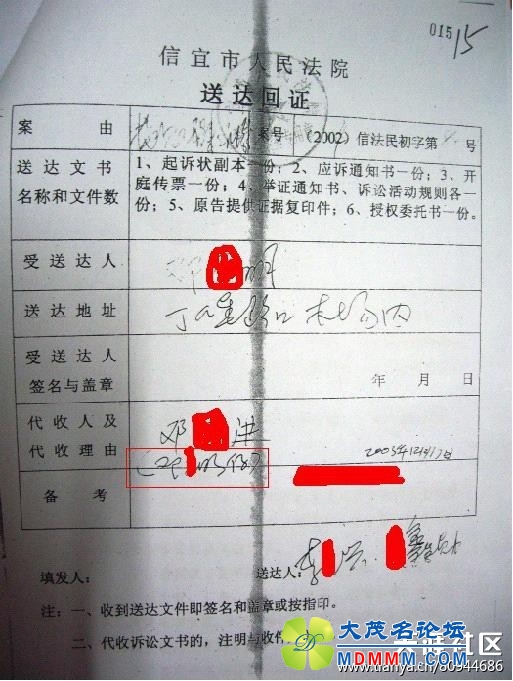 01515
信宜市人民法院
送达回证
案由
案号 (2002)信法民初字第 号
送达文书名称和文件数
1、起诉状副本一份；2、应诉通知书一份；3、开
庭传票一份；4、举证通知书、诉讼活动规则各一
份；5、原告提供证据复印件；6、授权委托书一份。
受送达人
邓 明
送达地址
受送达人
签名与盖章
年 月 日
代收人及
代收理由
邓
2003年12月17日
备考
填发人：
送达人：李
注：一、收到送达文件即签名和盖章或按指印。
二、代收诉讼文书的，注明与收件
大茂名论坛
MDMMM.COM
社区
www.tianya.cn/80944686